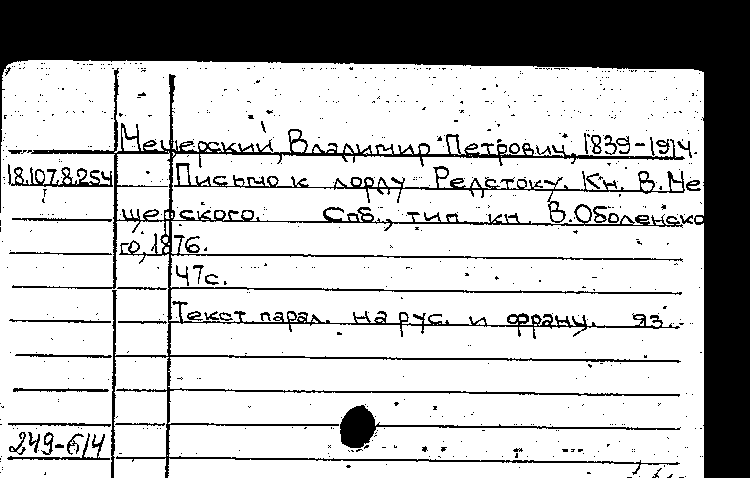 Мещерский, Владимир Петрович, 1839-1914.
18.107.8.254 Письмо к лорду Редстоку. Кн. В.Ме
щерского. Спб., тип. кн. В.Оболенско
го, 1876.
47с.
Текст парал. на рус. и франц. яз.
249-6/4